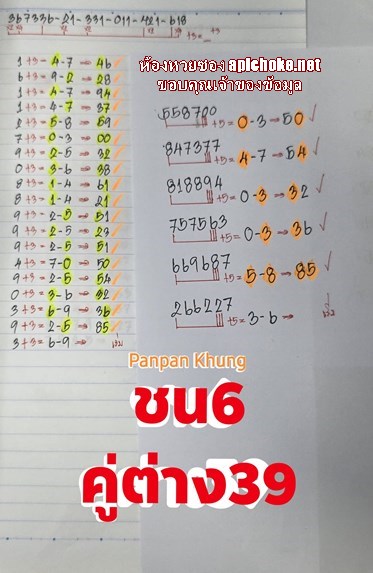 367336-21-331-011-421-618
+3=_+3
ห้องหวยซอง apichoke.net
ขอบคุณเจ้าของข้อมูล
1+3=4-7→46
6+3=9-2→28
1+3=4-7→94
1+3=4-7→37
2+3=5-8→59
7+3=0-3→00
9+3=2-5→32
0+3=3-6→38
8+3=1-4→61
8+3=1-4→21
9+3=2-5→51
9+3=2-5→23
9+3=2-5→51
4+3=7-0→50
9+3=2-5→54
0+3=3-6→32
3+3=6-9→36
9+3=2-5→85
3+3=6-9→
เย็น
558780
+5=0-3→50
847377
+5=4-7→54
818894
+5=0-3→32
757563
+5=0-3→36
669687
+5=5-8→85
266227
+5=3-6→
Panpan Khung
ชน6
คู่ต่าง39